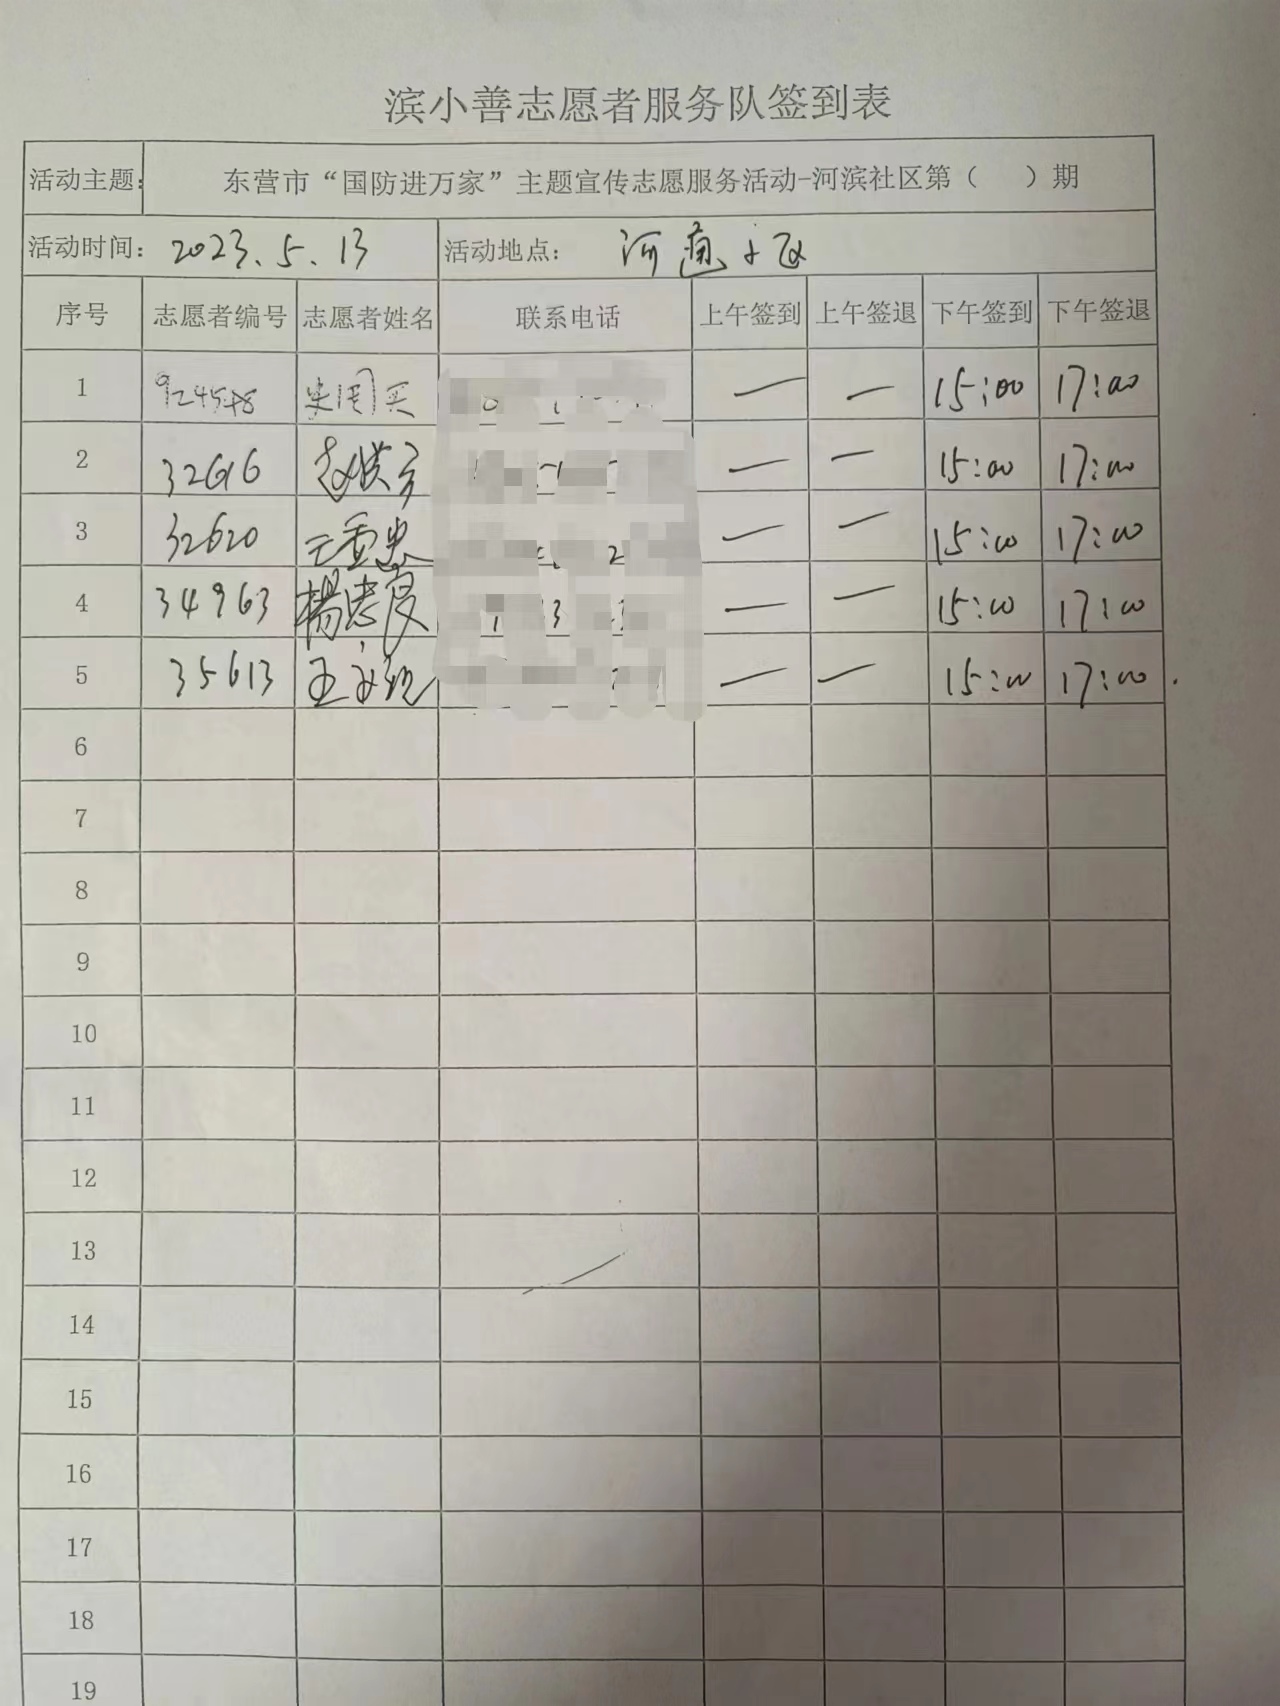 滨小善志愿者服务队签到表
活动主题: 东营市“国防进万家”主题宣传志愿服务活动-河滨社区第（ ）期
活动时间: 2023.5.13 活动地点: 河 小区
序号 志愿者编号 志愿者姓名 联系电话 上午签到 上午签退 下午签到 下午签退
1 — — 15:00 17:00
2 32616 — — 15:00 17:00
3 32620 — — 15:00 17:00
4 34963 楊忠良 — — 15:00 17:00
5 35613 — — 15:00 17:00
6
7
8
9
10
11
12
13
14
15
16
17
18
19